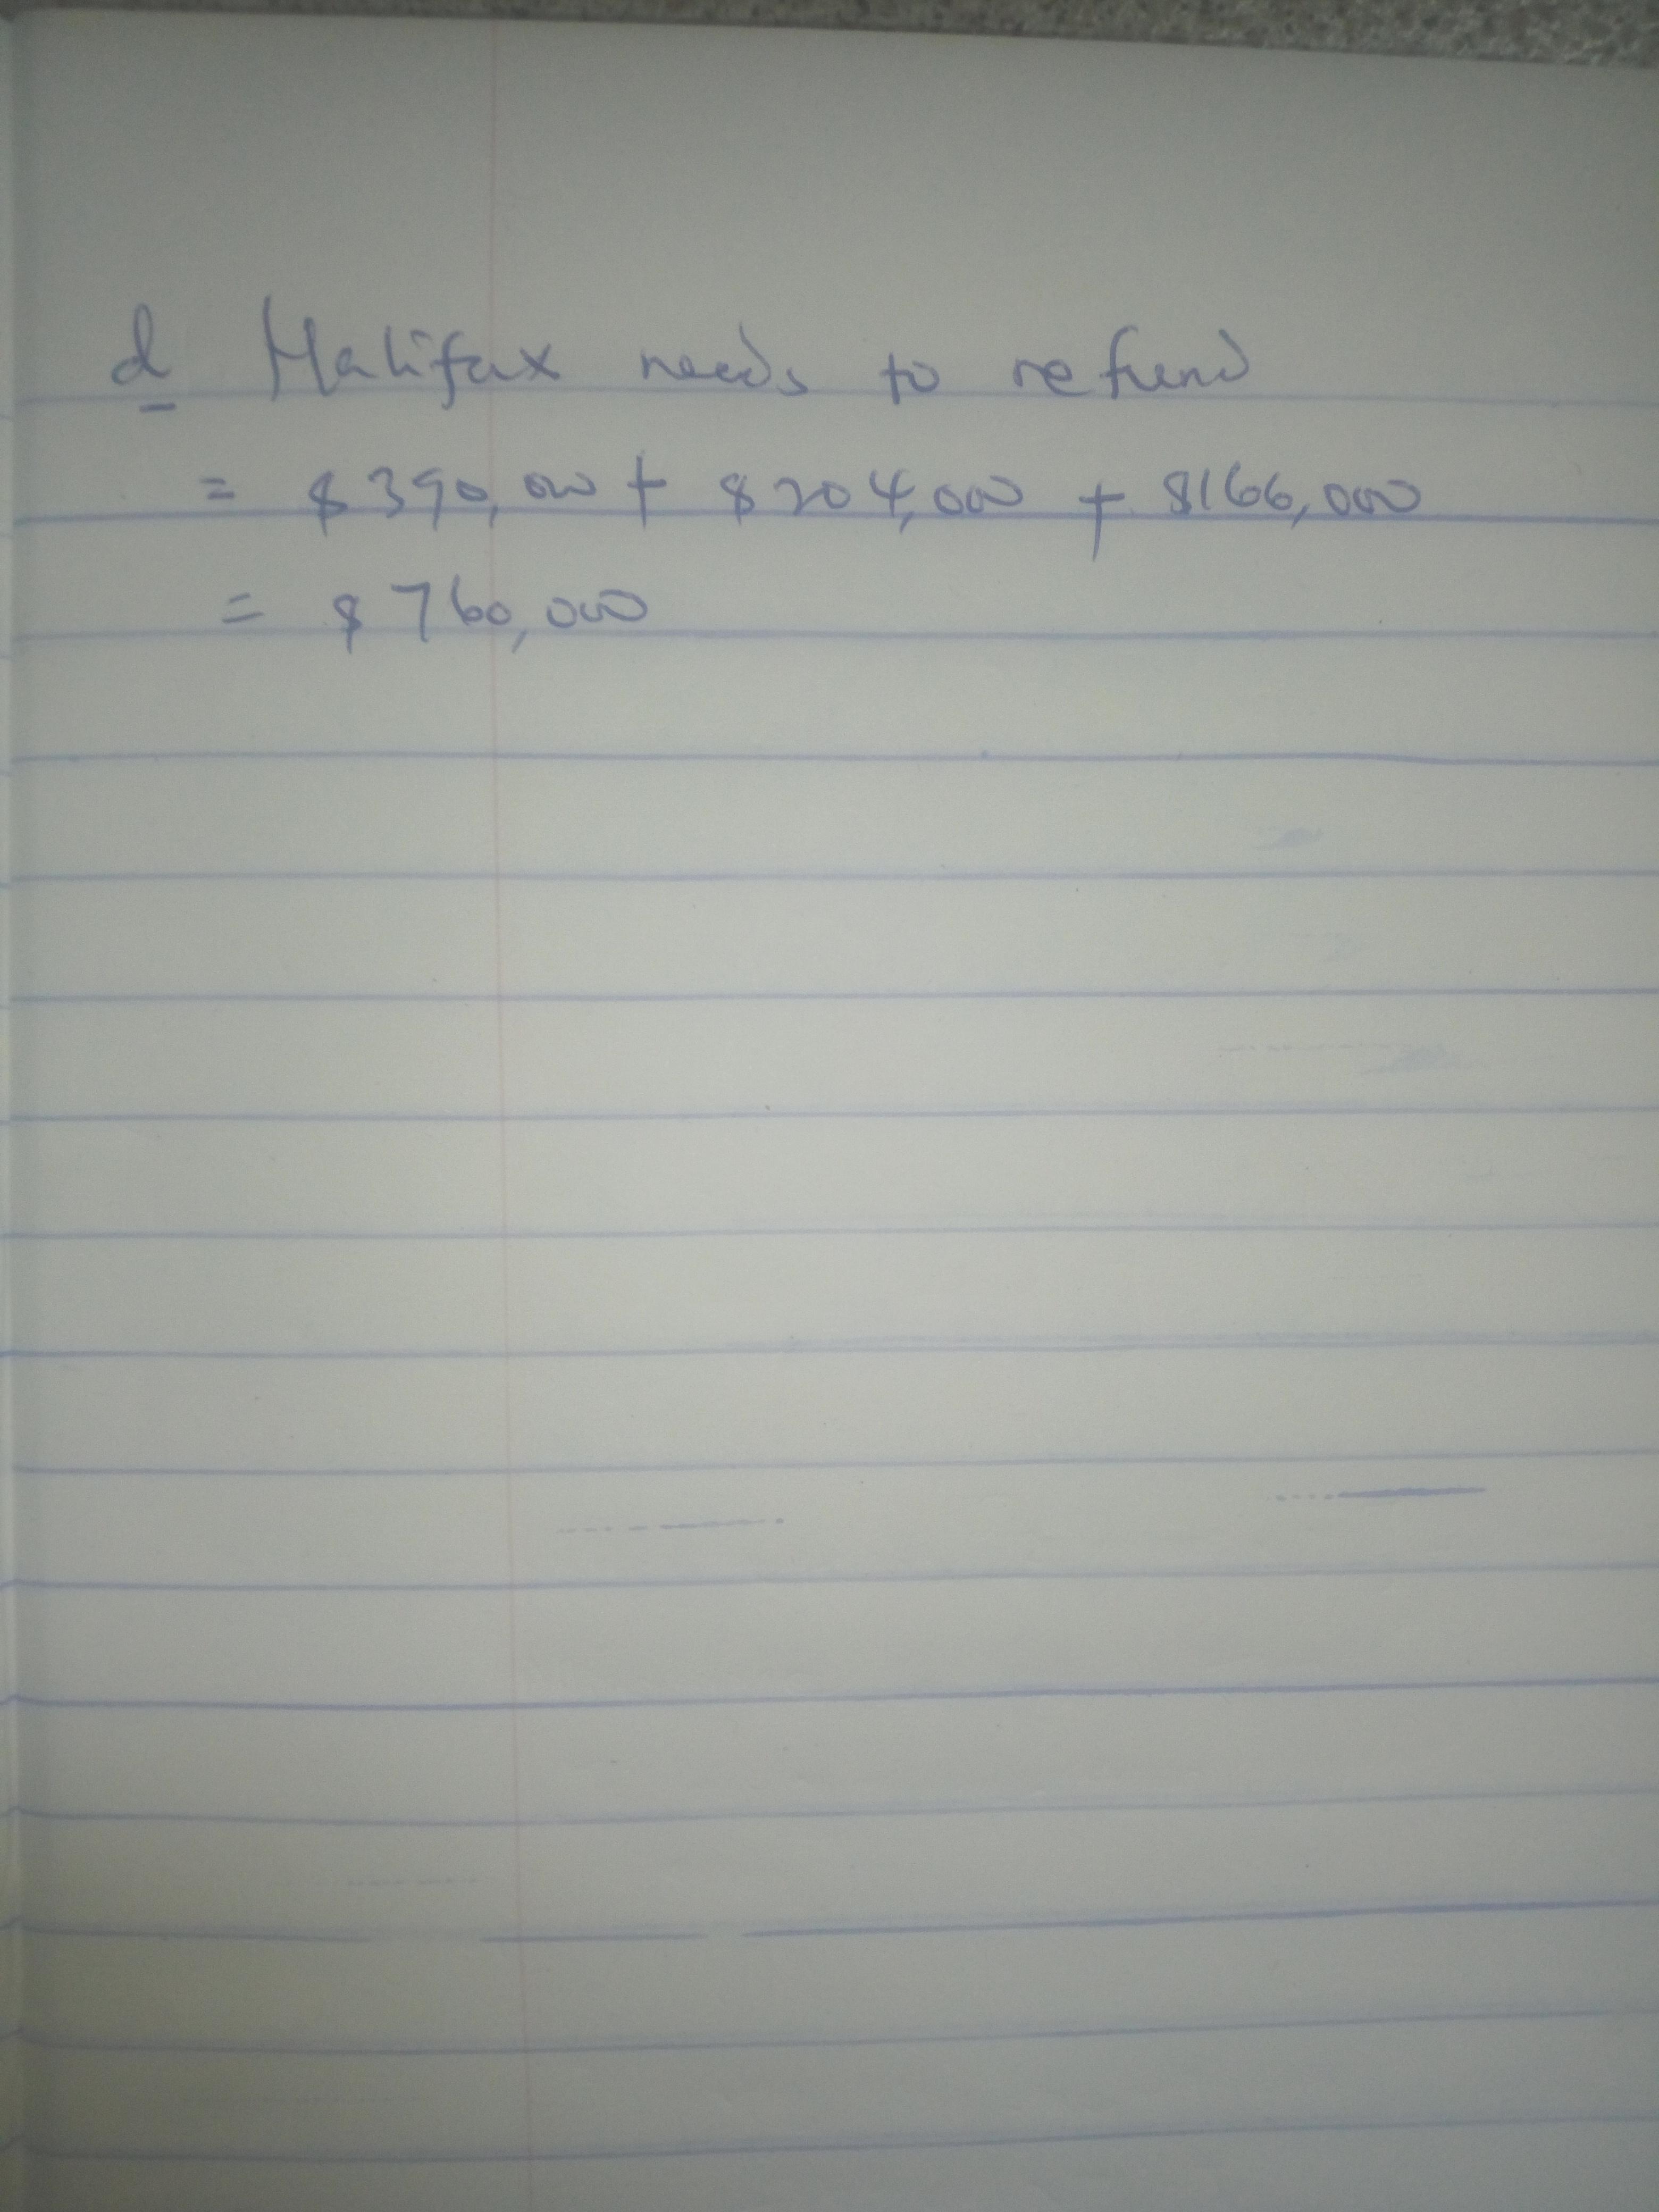 d Halifax needs to refund
= $390,000 + $204,000 + $166,000
= $760,000